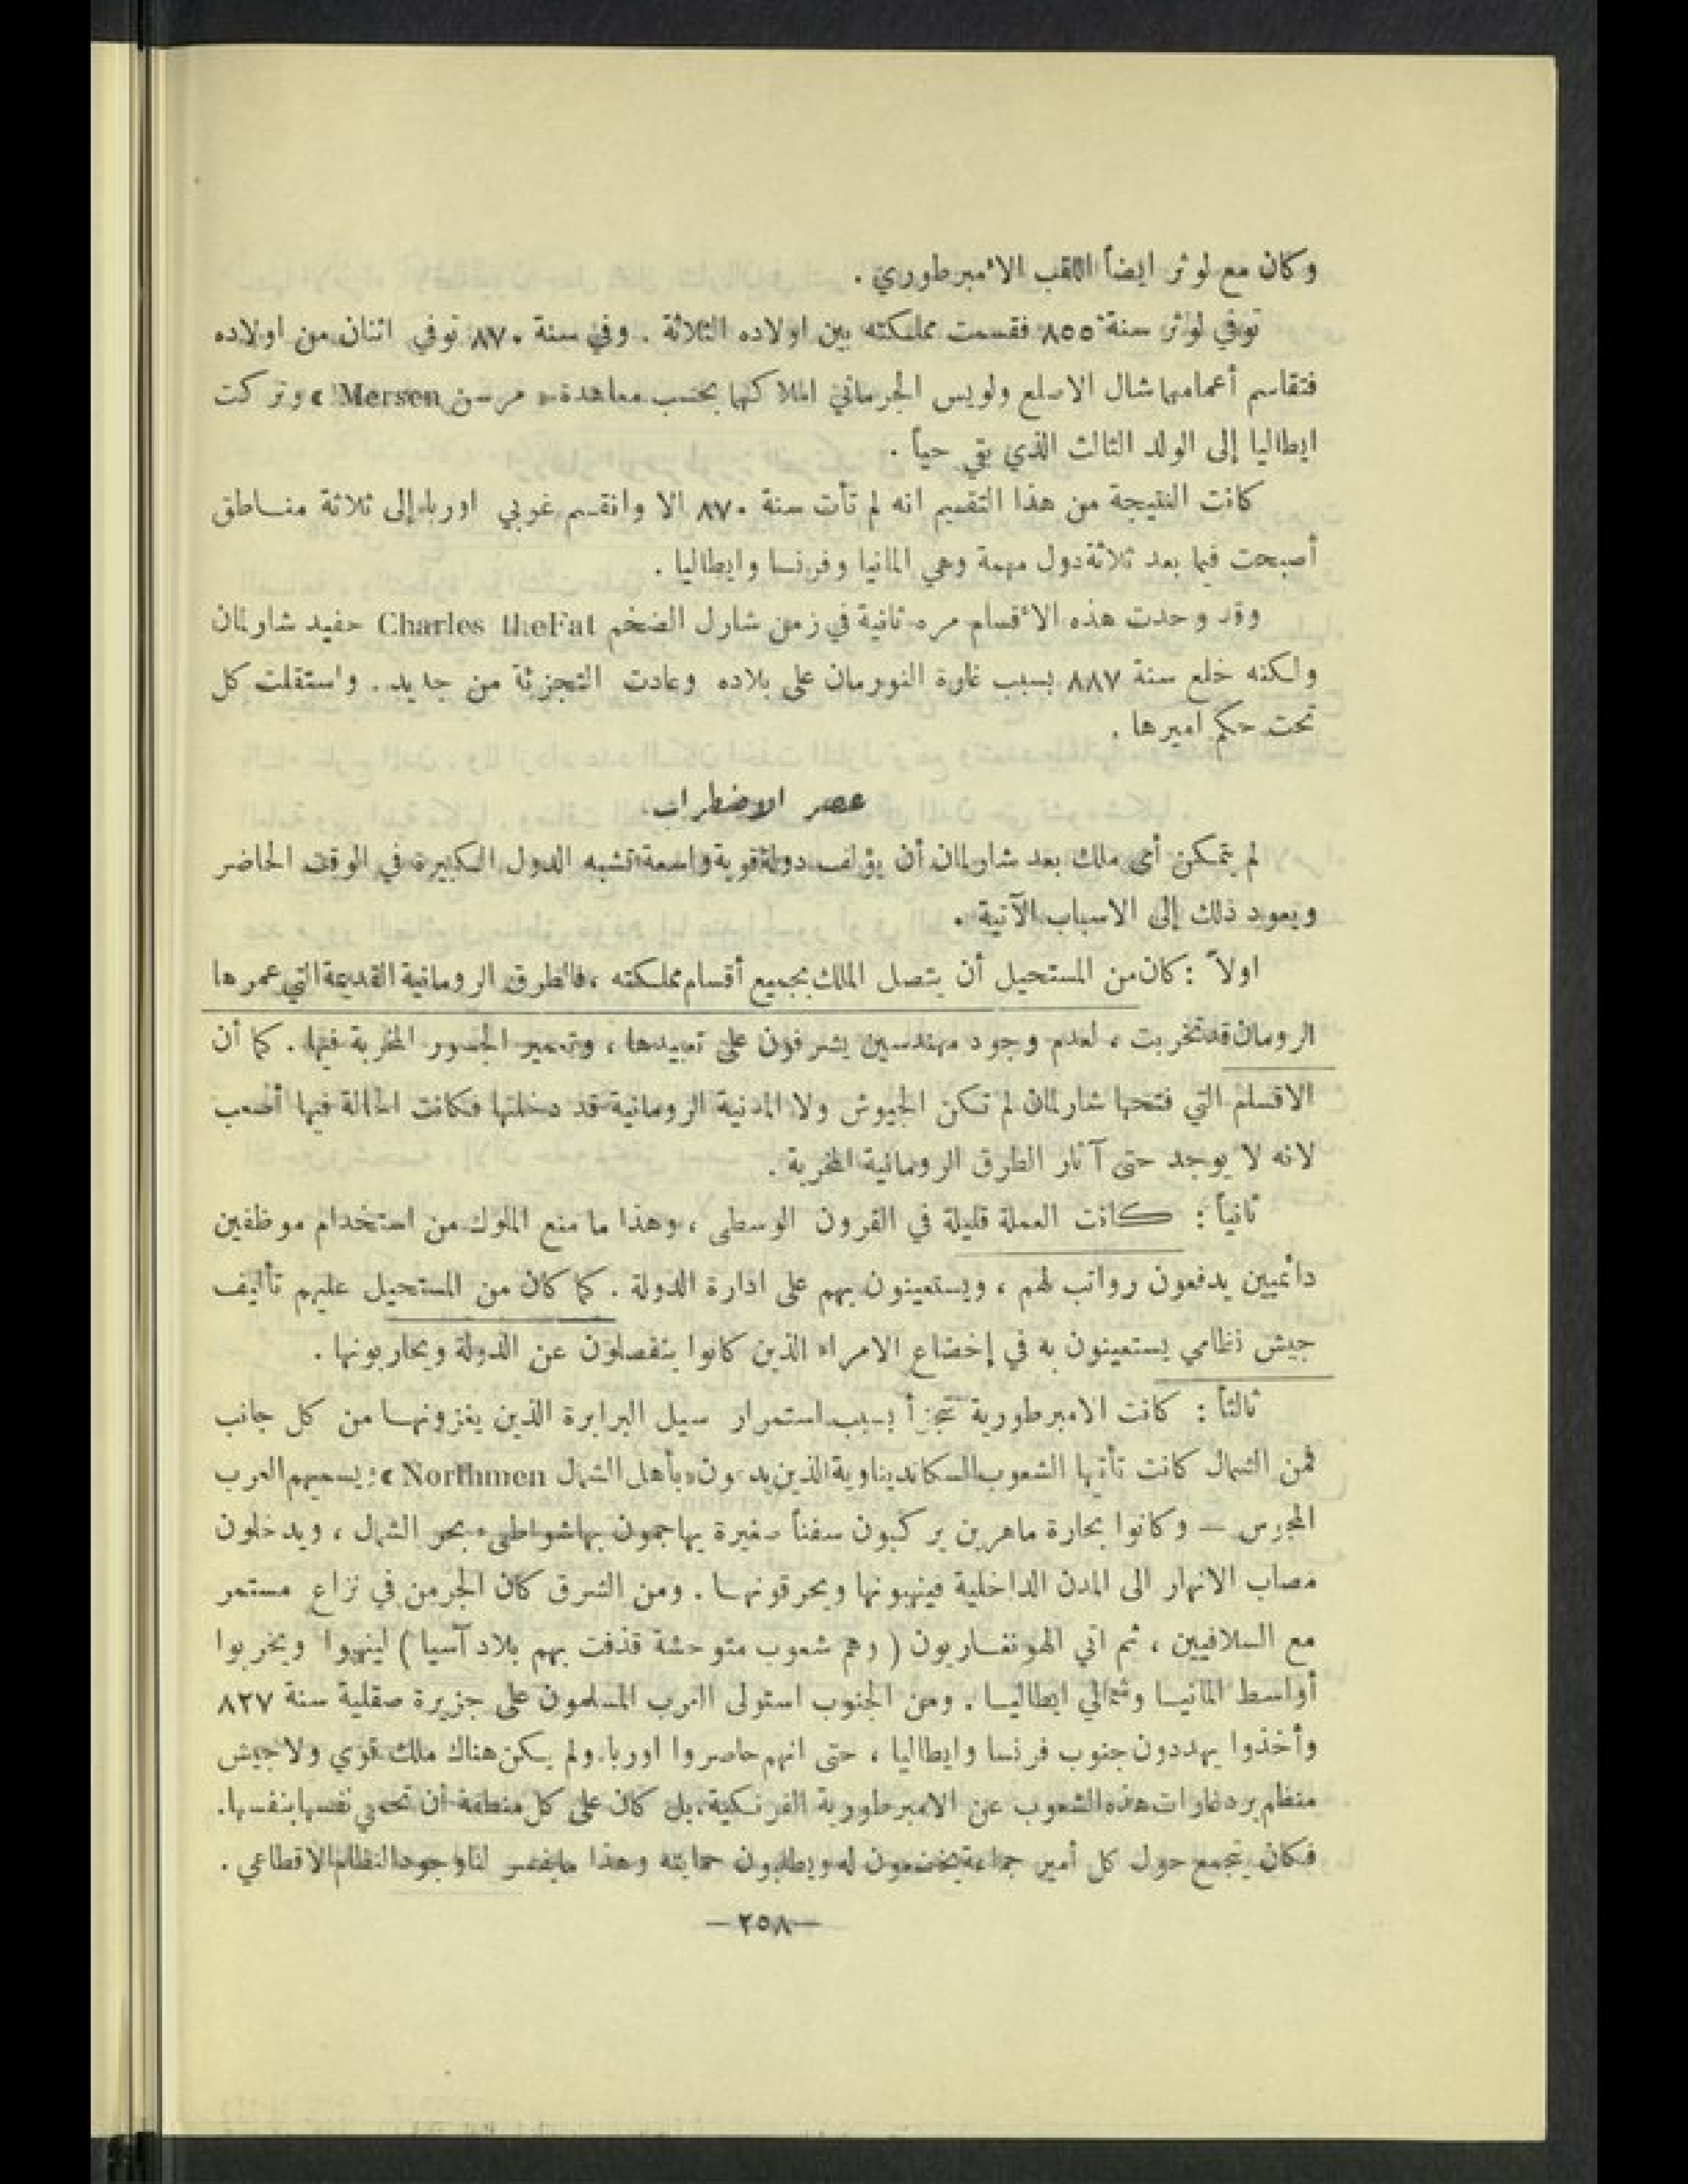 وكان مع لوثر ايضاً اللقب الأمبرطوري .
توفي لوثر سنة ٨٥٥ فقسمت مملكته بين اولاده الثلاثة . وفي سنة ٨٧٠ توفي اثنان من اولاده
فتقاسم أعمامهما شال الاصلع ولويس الجرماني املاكهما بحسب معاهدة « مرسن Mersen » وتركت
ايطاليا إلى الولد الثالث الذي بقي حياً .
كانت النتيجة من هذا التقسيم انه لم تأت سنة ٨٧٠ الا وانقسم غربي اوربا إلى ثلاثة منـاطق
أصبحت فيما بعد ثلاثة دول مهمة وهي المانيا وفرنسا وايطاليا .
وقد وحدت هذه الأقسام مره ثانية في زمن شارل الضخم Charles theFat حفيد شارلمان
ولكنه خلع سنة ٨٨٧ بسبب غارة النورمان على بلاده وعادت التجزئة من جديد . واستقلت كل
تحت حكم اميرها .
عصر الاضطراب
لم يتمكن أي ملك بعد شارلمان أن يؤلف دولة قوية واسعة تشبه الدول الكبيرة في الوقت الحاضر
ويعود ذلك إلى الاسباب الآتية .
اولاً : كان من المستحيل أن يتصل الملك بجميع أقسام مملكته ، فالطرق الرومانية القديمة التي عمرها
الرومان قد تخربت ، لعدم وجود مهندسين يشرفون على تعبيدها ، وتعمير الجسور المخربة فيها . كما أن
الاقسام التي فتحها شارلمان لم تكن الجيوش ولا المدنية الرومانية قد دخلتها فكانت الحالة فيها أصعب
لانه لا يوجد حتى آثار الطرق الرومانية المخربة .
ثانياً : كانت العملة قليلة في القرون الوسطى ، وهذا ما منع الملوك من استخدام موظفين
دائميين يدفعون رواتب لهم ، ويستعينون بهم على ادارة الدولة . كما كان من المستحيل عليهم تأليف
جيش نظامي يستعينون به في إخضاع الامراء الذين كانوا ينفصلون عن الدولة ويحاربونها .
ثالثاً : كانت الامبرطورية تتجزأ بسبب استمرار سيل البرابرة الذين يغزونهـا من كل جانب
فمن الشمال كانت تأتيها الشعوب السكانديناوية الذين يدعون « بأهل الشمال Northmen » يسميهم العرب
المجوس — وكانوا بحارة ماهرين يركبون سفناً صغيرة يهاجمون بها شواطىء بحر الشمال ، ويدخلون
مصاب الانهار الى المدن الداخلية فينهبونها ويحرقونهـا . ومن الشرق كان الجرمن في نزاع مستمر
مع السلافيين ، ثم اتى الهونغـاريون ( وهم شعوب متوحشة قذفت بهم بلاد آسيا ) لينهبوا ويخربوا
أواسط المانيـا وشمالي ايطاليـا . ومن الجنوب استولى العرب المسلمون على جزيرة صقلية سنة ٨٢٧
وأخذوا يهددون جنوب فرنسا وايطاليا ، حتى انهم حاصروا اوربا. ولم يـكن هناك ملك قوي ولا جيش
منظم يرد غارات هذه الشعوب عن الامبرطورية الفرنـكية، بل كان على كل منطقة أن تحمي نفسها بنفسها.
فكان يتجمع حول كل أمير جماعة يخضعون له ويطلبون حمايته وهذا ما يفسر لنا وجود النظام الاقطاعي .
—٢٥٨—